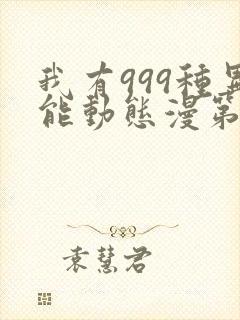 我有999種異
能動態漫第
袁慧君